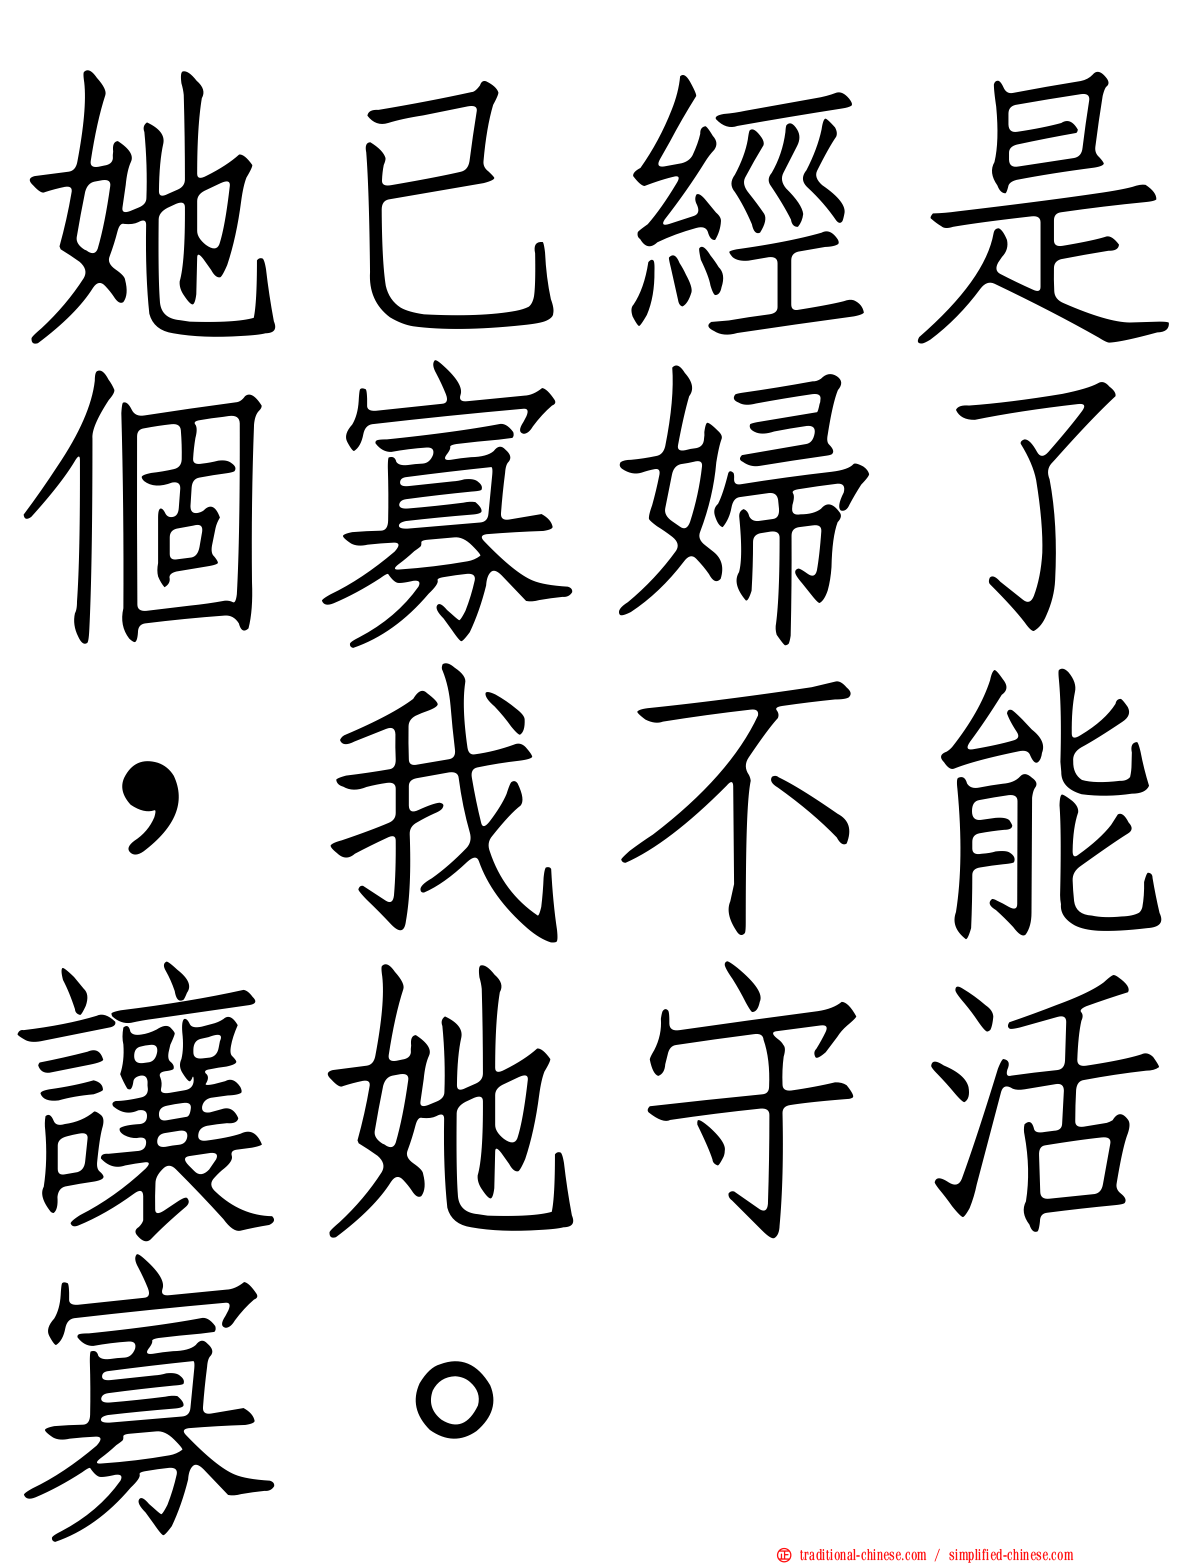 她已經是
個寡婦了
，我不能
讓她守活
寡。
㊣ traditional-chinese.com / simplified-chinese.com